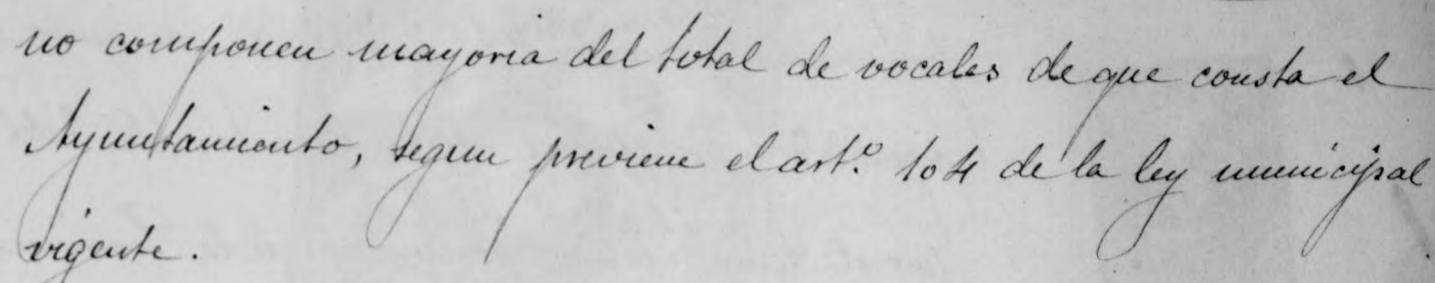 no componen mayoria del total de vocales de que consta el
Ayuntamiento, segun previene el art.º 104 de la ley municipal
vigente.